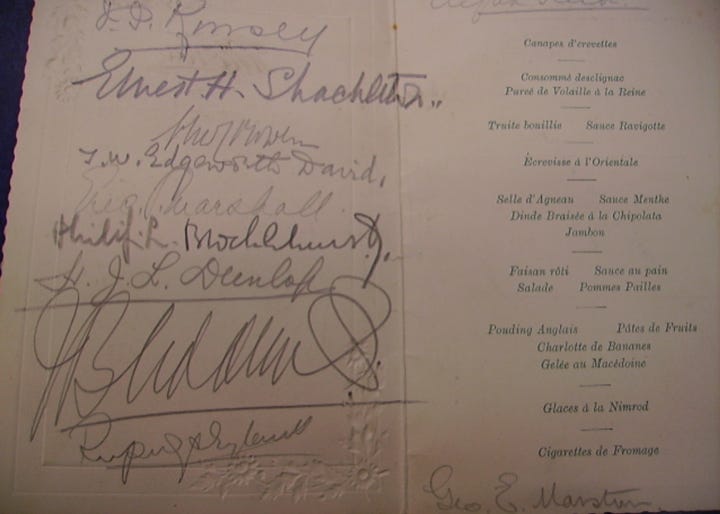 Ernest H. Shackleton
T. W. Edgeworth David.
Eric Marshall.
Philip L. Brocklehurst
H. J. L. Dunlop
Canapes d'crevettes
Consommé desclignac
Pureé de Volaille à la Reine
Truite bouillie Sauce Ravigotte
Écrevisse à l'Orientale
Selle d'Agneau Sauce Menthe
Dinde Braisée à la Chipolata
Jambon
Faisan rôti Sauce au pain
Salade Pommes Pailles
Pouding Anglais Pâtes de Fruits
Charlotte de Bananes
Gelée au Macédoine
Glaces à la Nimrod
Cigarettes de Fromage
Geo. E. Marston.